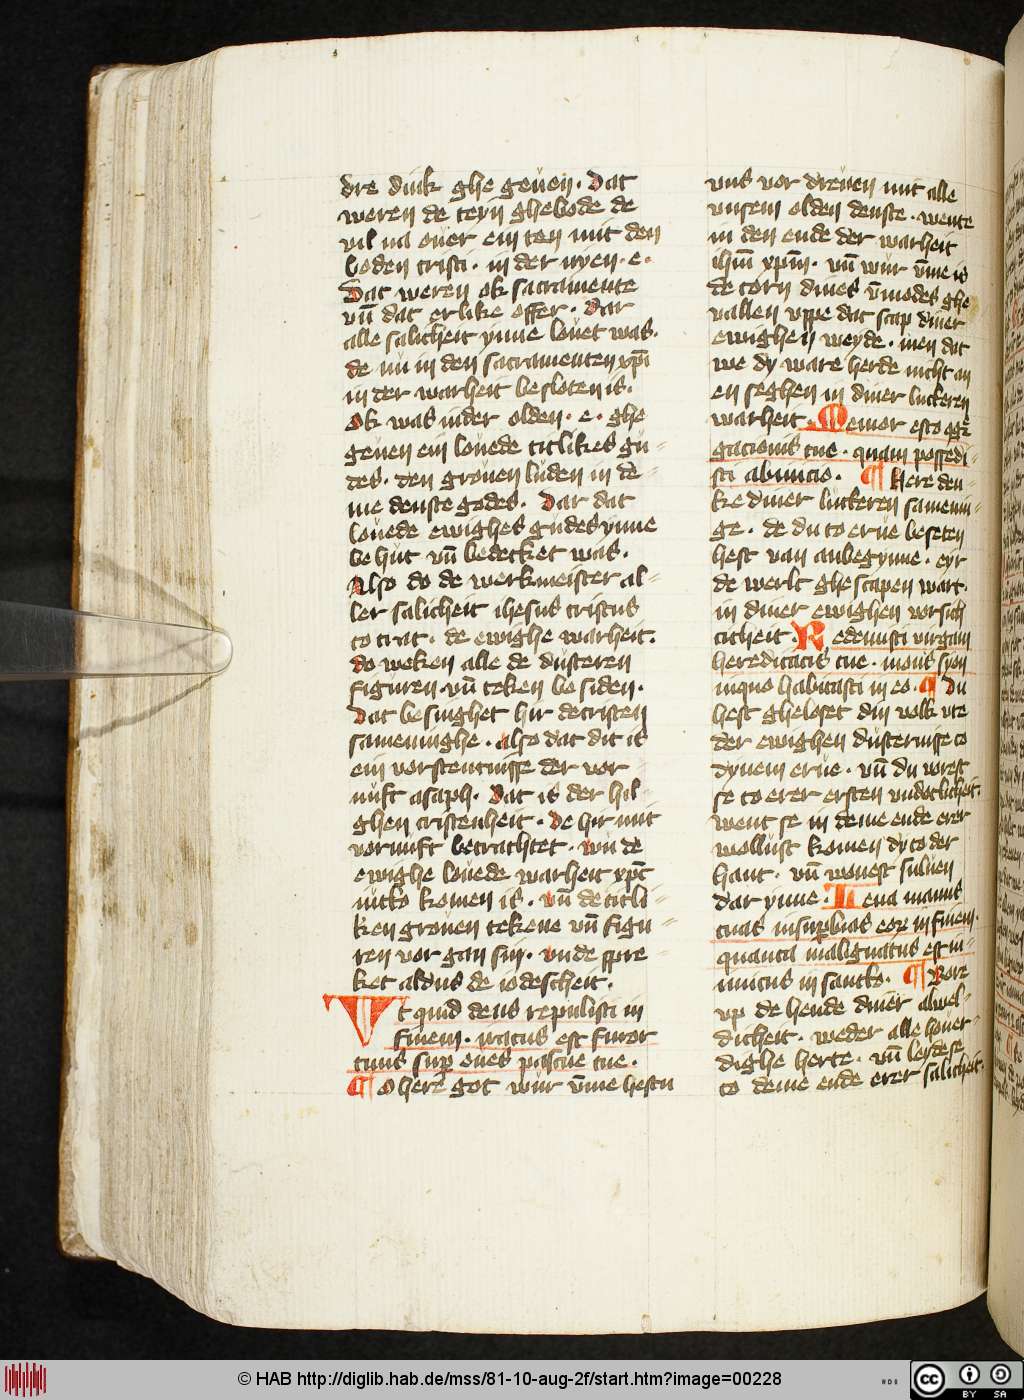 dre dink ghe geuen. Dat
weren de teyn ghebode de
vil na ouer ein ten mit den
boden cristi. in der nyen. e.
Dat weren ok sacramente
vn̄ dat erlike offer. Dar
alle salicheit ynne louet was.
de nu in den sacramenten xp̄i
in der warheit besloten is.
Ok was in der olden. e. ghe
geuen ein louede titlikes gu-
des. den grouen luden in de-
me denste godes. Dar dat
louede ewighes gudes ynne
behut vn̄ bedecket was.
Also do de werkmeister al-
ler salicheit ihesus cristus
to trat. de ewighe warheit.
do weken alle de dusteren
figuren. vn̄ teken besiden.
Dat besinghet hir de cristen
sameninghe. also dat dit is
ein vorstentnisse der vor
nuft asaph. Dat is der hil
ghen cristenheit. De hir mit
vornuft betrachtet. wu de
ewighe louede warheit xp̄c
nu to komen is. vn̄ de titli-
ken grouen tekene vn̄ figu-
ren vor gan sin. vnde spre-
ket aldus de iodescheit.
Vt quid deus repulisti in
finem. iratus est furor
tuus sup̄ oues pascue tue.
¶ O here got wur vm̄e hestu
vns vor dreuen mit alle
vnsem olden denste. wente
in den ende der warheit
ihm̄ xpm̄. vn̄ wur vm̄e is
de torn dines vn̄modes ghe
uallen vppe dat scap diner
ewighen weyde. men dat
we dy ware herde nicht an
en seghen in diner luckeren
warheit. Memor esto ɔgre
gacionis tue. quam possedi-
sti ab inicio. ¶ Here den-
ke diner luckeren samenin-
ge. de du to erue beseten
hest van anbegynne. eyr
de werlt ghescapen wart.
in diner ewighen vorsich
ticheit. Redemisti virgam
hereditatis tue. mons syon
in quo habitasti in eo. ¶ Du
hest gheloset din volk vte
der ewighen dusternisse to
dynem erue. vn̄ du vorest
se to erer ersten vndotlicheit.
went se in deme ende erer
wollust komen dy to der
hant. vn̄ wonest suluen
dar ynne. Leua manus
tuas in sup̄bias eoꝝ in finem.
quanta malignatus est in-
imicus in sancto. ¶ Bore
vp de hende diner alwel-
dicheit. weder alle houer-
dighe herte. vn̄ leyde se
to deme ende erer salicheit.
© HAB http://diglib.hab.de/mss/81-10-aug-2f/start.htm?image=00228
HAB
cc BY SA